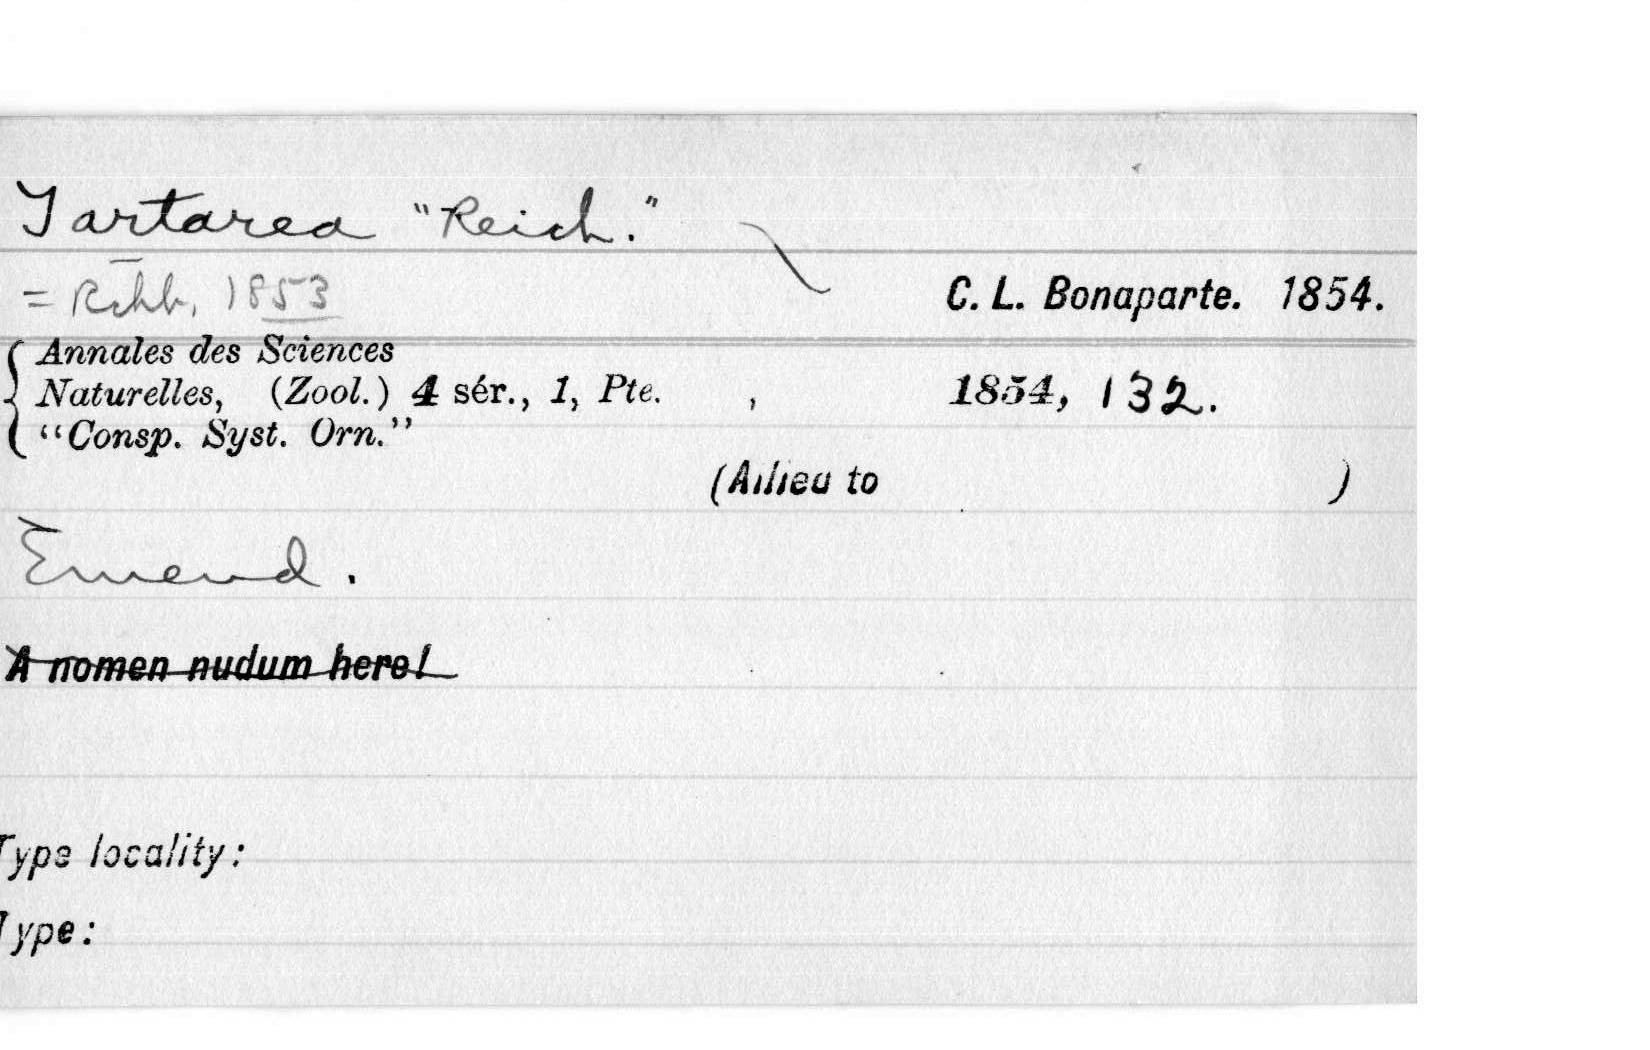 Tartarea "Reich."
= Rchb, 1853
C. L. Bonaparte. 1854.
Annales des Sciences
Naturelles, (Zool.) 4 sér., 1, Pte. , 1854, 132.
"Consp. Syst. Orn."
(Allied to )
Emend.
A nomen nudum here!
Type locality:
Type: